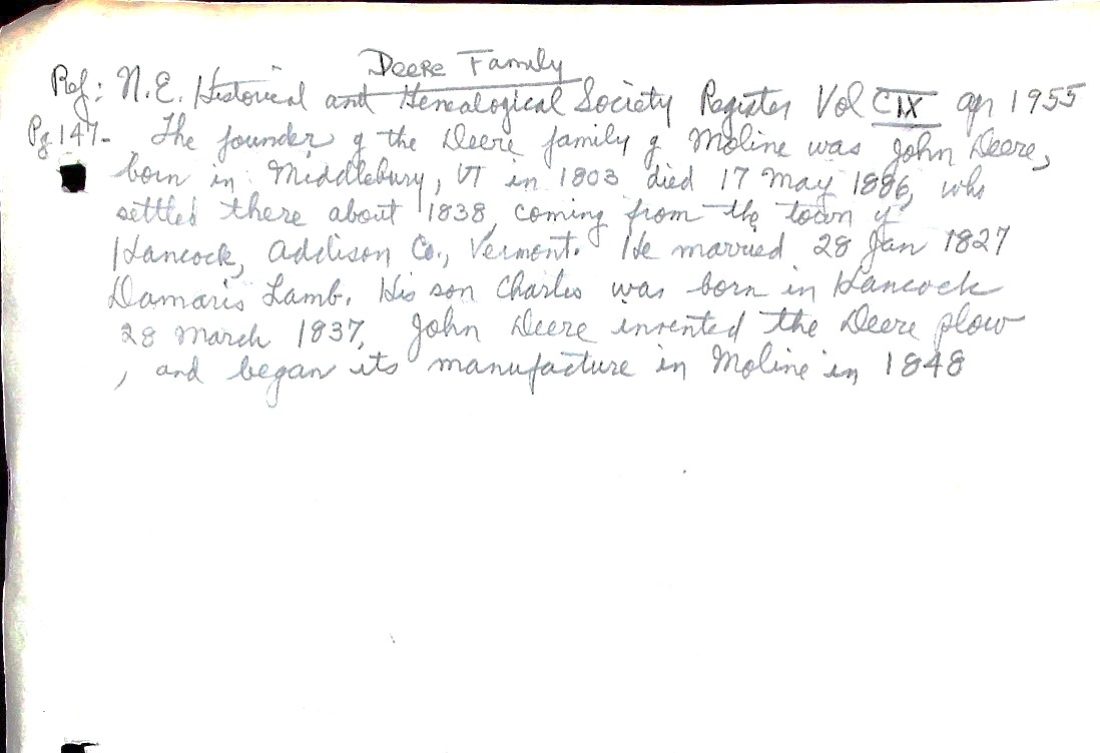 Deere Family
Ref: N.E. Historical and Genealogical Society Register Vol CIX apr 1955
Pg.147- The founder of the Deere family of Moline was John Deere,
born in Middlebury, VT in 1803 died 17 May 1886, who
settled there about 1838, coming from the town of
Hancock, Addison Co., Vermont. He married 28 Jan 1827
Damaris Lamb. His son Charles was born in Hancock
28 March 1837, John Deere invented the Deere plow
, and began its manufacture in Moline in 1848